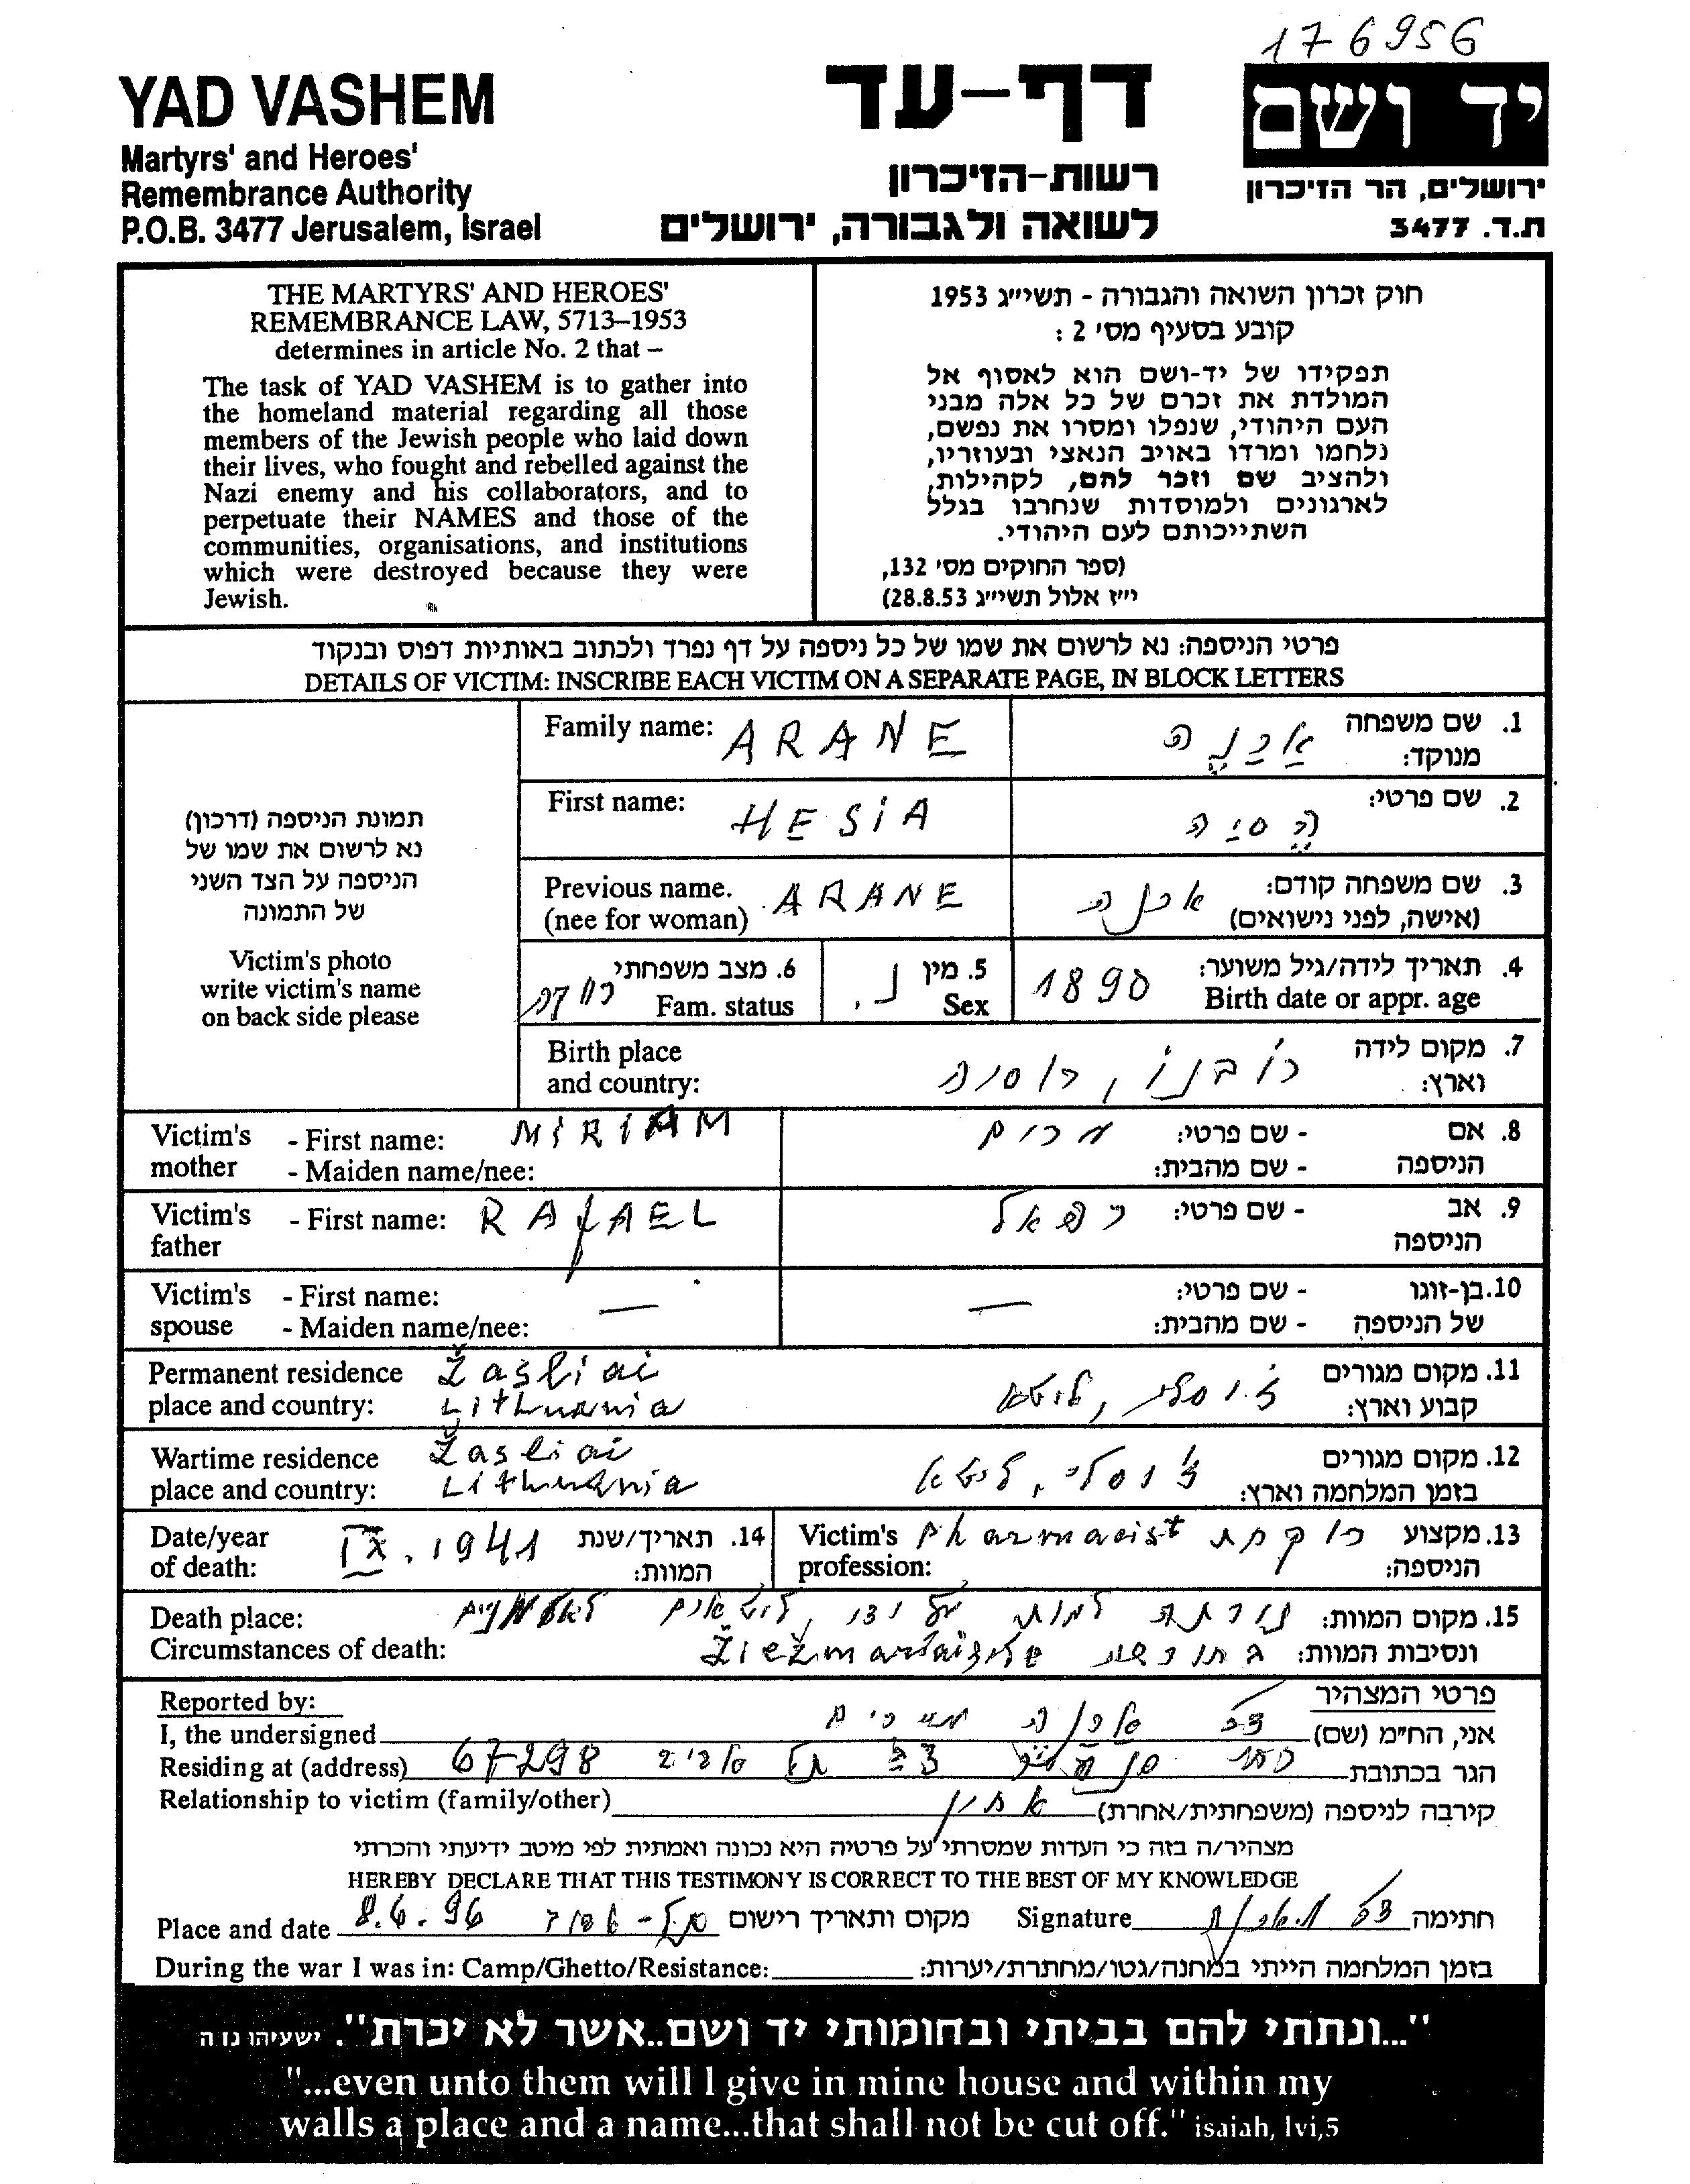 176956
YAD VASHEM
Martyrs' and Heroes'
Remembrance Authority
P.O.B. 3477 Jerusalem, Israel
דף-עד
רשות-הזיכרון
לשואה ולגבורה, ירושלים
יד ושם
ירושלים, הר הזיכרון
ת.ד. 3477
THE MARTYRS' AND HEROES'
REMEMBRANCE LAW, 5713–1953
determines in article No. 2 that –
The task of YAD VASHEM is to gather into
the homeland material regarding all those
members of the Jewish people who laid down
their lives, who fought and rebelled against the
Nazi enemy and his collaborators, and to
perpetuate their NAMES and those of the
communities, organisations, and institutions
which were destroyed because they were
Jewish.
חוק זכרון השואה והגבורה - תשי״ג 1953
קובע בסעיף מס׳ 2 :
תפקידו של יד-ושם הוא לאסוף אל
המולדת את זכרם של כל אלה מבני
העם היהודי, שנפלו ומסרו את נפשם,
נלחמו ומרדו באויב הנאצי ובעוזריו,
ולהציב שם וזכר להם, לקהילות,
לארגונים ולמוסדות שנחרבו בגלל
השתייכותם לעם היהודי.
(ספר החוקים מס׳ 132,
י״ז אלול תשי״ג 28.8.53)
פרטי הניספה: נא לרשום את שמו של כל ניספה על דף נפרד ולכתוב באותיות דפוס ובנקוד
DETAILS OF VICTIM: INSCRIBE EACH VICTIM ON A SEPARATE PAGE, IN BLOCK LETTERS
תמונת הניספה (דרכון)
נא לרשום את שמו של
הניספה על הצד השני
של התמונה
Victim's photo
write victim's name
on back side please
Family name: ARANE
1. שם משפחה
מנוקד:
First name: HESIA
2. שם פרטי: הסיה
Previous name. ARANE
(nee for woman)
3. שם משפחה קודם:
(אישה, לפני נישואים)
4. תאריך לידה/גיל משוער:
1890 Birth date or appr. age
5. מין נ.
Sex
6. מצב משפחתי
Fam. status רווקה
Birth place
and country:
7. מקום לידה
וארץ: רוסיה
Victim's - First name: MIRIAM
mother - Maiden name/nee:
8. אם - שם פרטי: מרים
הניספה - שם מהבית:
Victim's - First name: RAfAEL
father
9. אב - שם פרטי: רפאל
הניספה
Victim's - First name: —
spouse - Maiden name/nee:
10. בן-זוגו - שם פרטי: —
של הניספה - שם מהבית:
Permanent residence Žasliai
place and country: Lithuania
11. מקום מגורים
קבוע וארץ: ז'וסלי, ליטא
Wartime residence Žasliai
place and country: Lithuania
12. מקום מגורים
בזמן המלחמה וארץ: ז'וסלי, ליטא
Date/year
of death: IX. 1941
14. תאריך/שנת
המוות:
Victim's Pharmacist
profession:
13. מקצוע רוקחת
הניספה:
Death place:
Circumstances of death:
15. מקום המוות: נורתה למות על ידי
ונסיבות המוות: בחורשת
Reported by:
פרטי המצהיר
I, the undersigned
אני, הח״מ (שם)
Residing at (address) 67298 תל אביב
הגר בכתובת
Relationship to victim (family/other)
קירבה לניספה (משפחתית/אחרת) אחיין
מצהיר/ה בזה כי העדות שמסרתי על פרטיה היא נכונה ואמתית לפי מיטב ידיעתי והכרתי
HEREBY DECLARE THAT THIS TESTIMONY IS CORRECT TO THE BEST OF MY KNOWLEDGE
Place and date 8.6.96 מקום ותאריך רישום
Signature חתימה
During the war I was in: Camp/Ghetto/Resistance: בזמן המלחמה הייתי במחנה/גטו/מחתרת/יערות:
"...ונתתי להם בביתי ובחומותי יד ושם..אשר לא יכרת". ישעיהו נו ה
"...even unto them will I give in mine house and within my
walls a place and a name...that shall not be cut off." isaiah, lvi,5